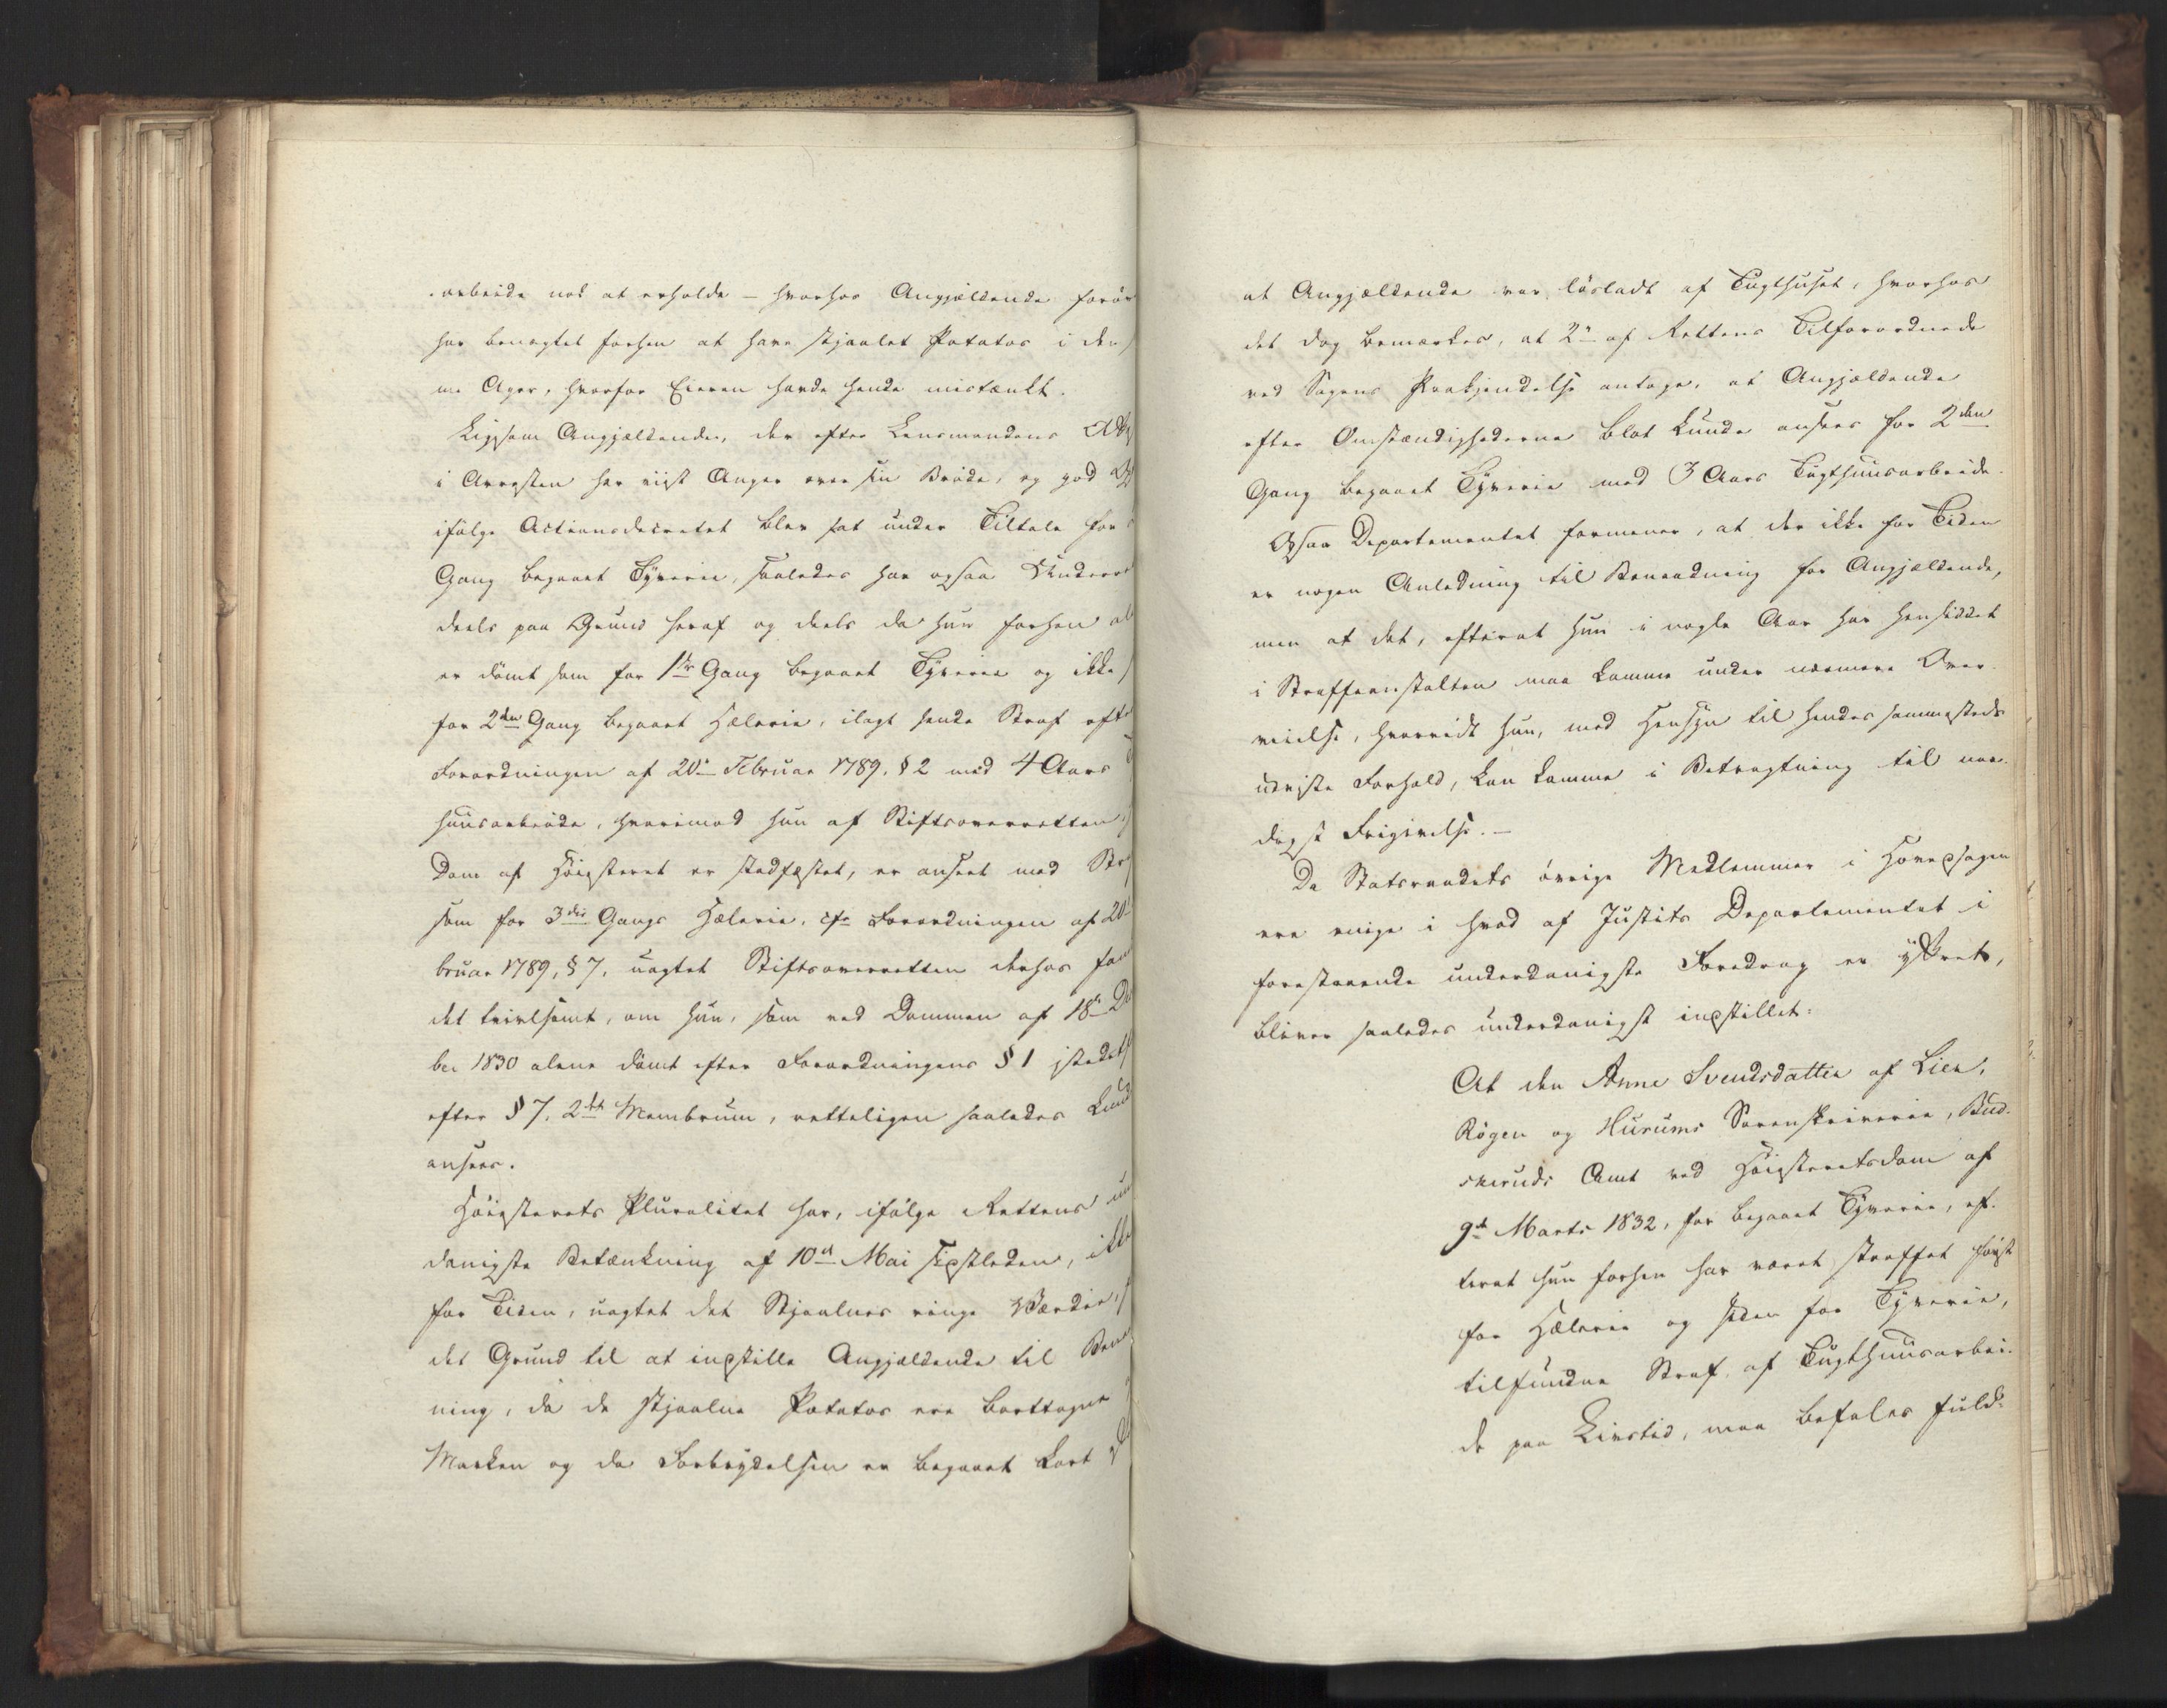 arbeide nok at erholde – hvorhos Angjældende forøv
har benægtet forhen at have stjaalet Potatos i den
me Ager, hvorfor Eieren havde hende mistænkt.
Ligesom Angjældende, der efter Lensmandens Att
i Arresten har viist Anger over sin Brøde, og god
ifølge Actionsdecretet blev sat under Tiltale for
Gang begaaet Tyverie, saaledes har ogsaa Underre
deels paa Grund heraf og deels da hun forhen al
er dømt som for 1ste Gang begaaet Tyverie og ikke
for 2den Gang begaaet Hælerie, ilagt hende Straf efter
Forordningen af 20de Februar 1789. § 2 med 4 Aars
huusarbeide, hvorimod hun af Stiftsoverretten,
Dom af Høiesteret er stadfæstet, er anseet med Str
som for 3die Gangs Hælerie, cfr Forordningen af 20
bruar 1789, § 7, uagtet Stiftsoverretten derhos fan
det tvivlsomt, om hun, som ved Dommen af 18de De
ber 1830 alene dømt efter Forordningens § 1 istedetf
efter § 7, 2det Membrum, retteligen saaledes kund
ansees.
Høiesterets Pluralitet har, ifølge Rettens un
danigste Betænkning af 10de Mai sidstleden, ikke
for Tiden, uagtet det Stjaalnes ringe Værdie,
det Grund til at indstille Angjældende til Benaa
ning, da de stjaalne Potatos ere borttagne
Marken og da Forbrydelsen er begaaet kort
at Angjældende var løsladt af Tugthuset, hvorhos
det dog bemærkes, at 2de af Rettens Tilforordnede
ved Sagens Paakjendelse antoge, at Angjældende
efter Omstændighederne blot kunde ansees for 2den
Gang begaaet Tyverie med 3 Aars Tugthuusarbeide.
Ogsaa Departementet formener, at der ikke for Tiden
er nogen Anledning til Benaadning for Angjældende,
men at det, efterat hun i nogle Aar har hensiddet
i Straffeanstalten maa komme under nærmere Over-
veielse, hvorvidt hun, med Hensyn til hendes sammesteds
udviste Forhold, kan komme i Betragtning til naa-
digst Frigivelse. –
Da Statsraadets øvrige Medlemmer i Hovedsagen
ere enige i hvad af Justits Departementet i
forestaaende underdanigste Foredrag er yttret,
bliver saaledes underdanigst indstillet:
At den Anne Svendsdatter af Lier,
Røgen og Hurums Sorenskriverie, Bud-
skeruds Amt ved Høiesteretsdom af
9de Marts 1832, for begaaet Tyverie, ef-
terat hun forhen har været straffet først
for Hælerie og siden for Tyverie,
tilfundne Straf af Tugthuusarbei-
de paa Livstid, maa befales fuld-